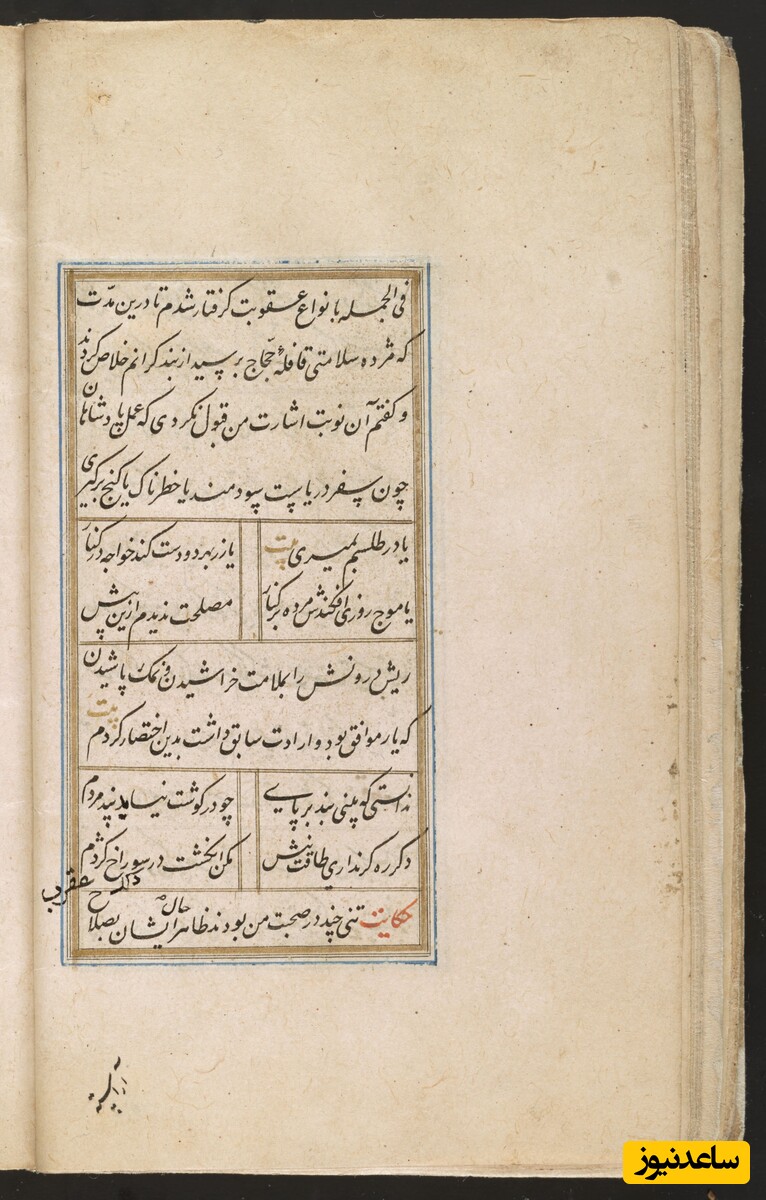 فی الجمله بانواع عقوبت کرفتار شدم تا درین مدّت
که مژده سلامتی قافلهٔ حجّاج برسید از بند کرانم خلاص کردند
و کفتم آن نوبت اشارت من قبول نکردی که عمل پادشاهان
چون سفر دریاست سودمند یا خطرناک یا کنج برکیری
یا در طلسم بمیری بیت یا زر بهر دو دست کند خواجه در کنار
یا موج روزی افکندش مرده بر کنار مصلحت ندیدم ازین پیش
ریش درونش را بملامت خراشیدن و نمک پاشیدن
که یار موافق بود و ارادت سابق داشت بدین اختصار کردم بیت
ندانستی که بینی بند بر پای چو در کوشت نیامد پند مردم
دکر ره کر نداری طاقت نیش مکن انکشت در سوراخ کژدم
عقرب
حکایت تنی چند در صحبت من بودند ظاهر حال ایشان بصلاح
ساعدنیوز